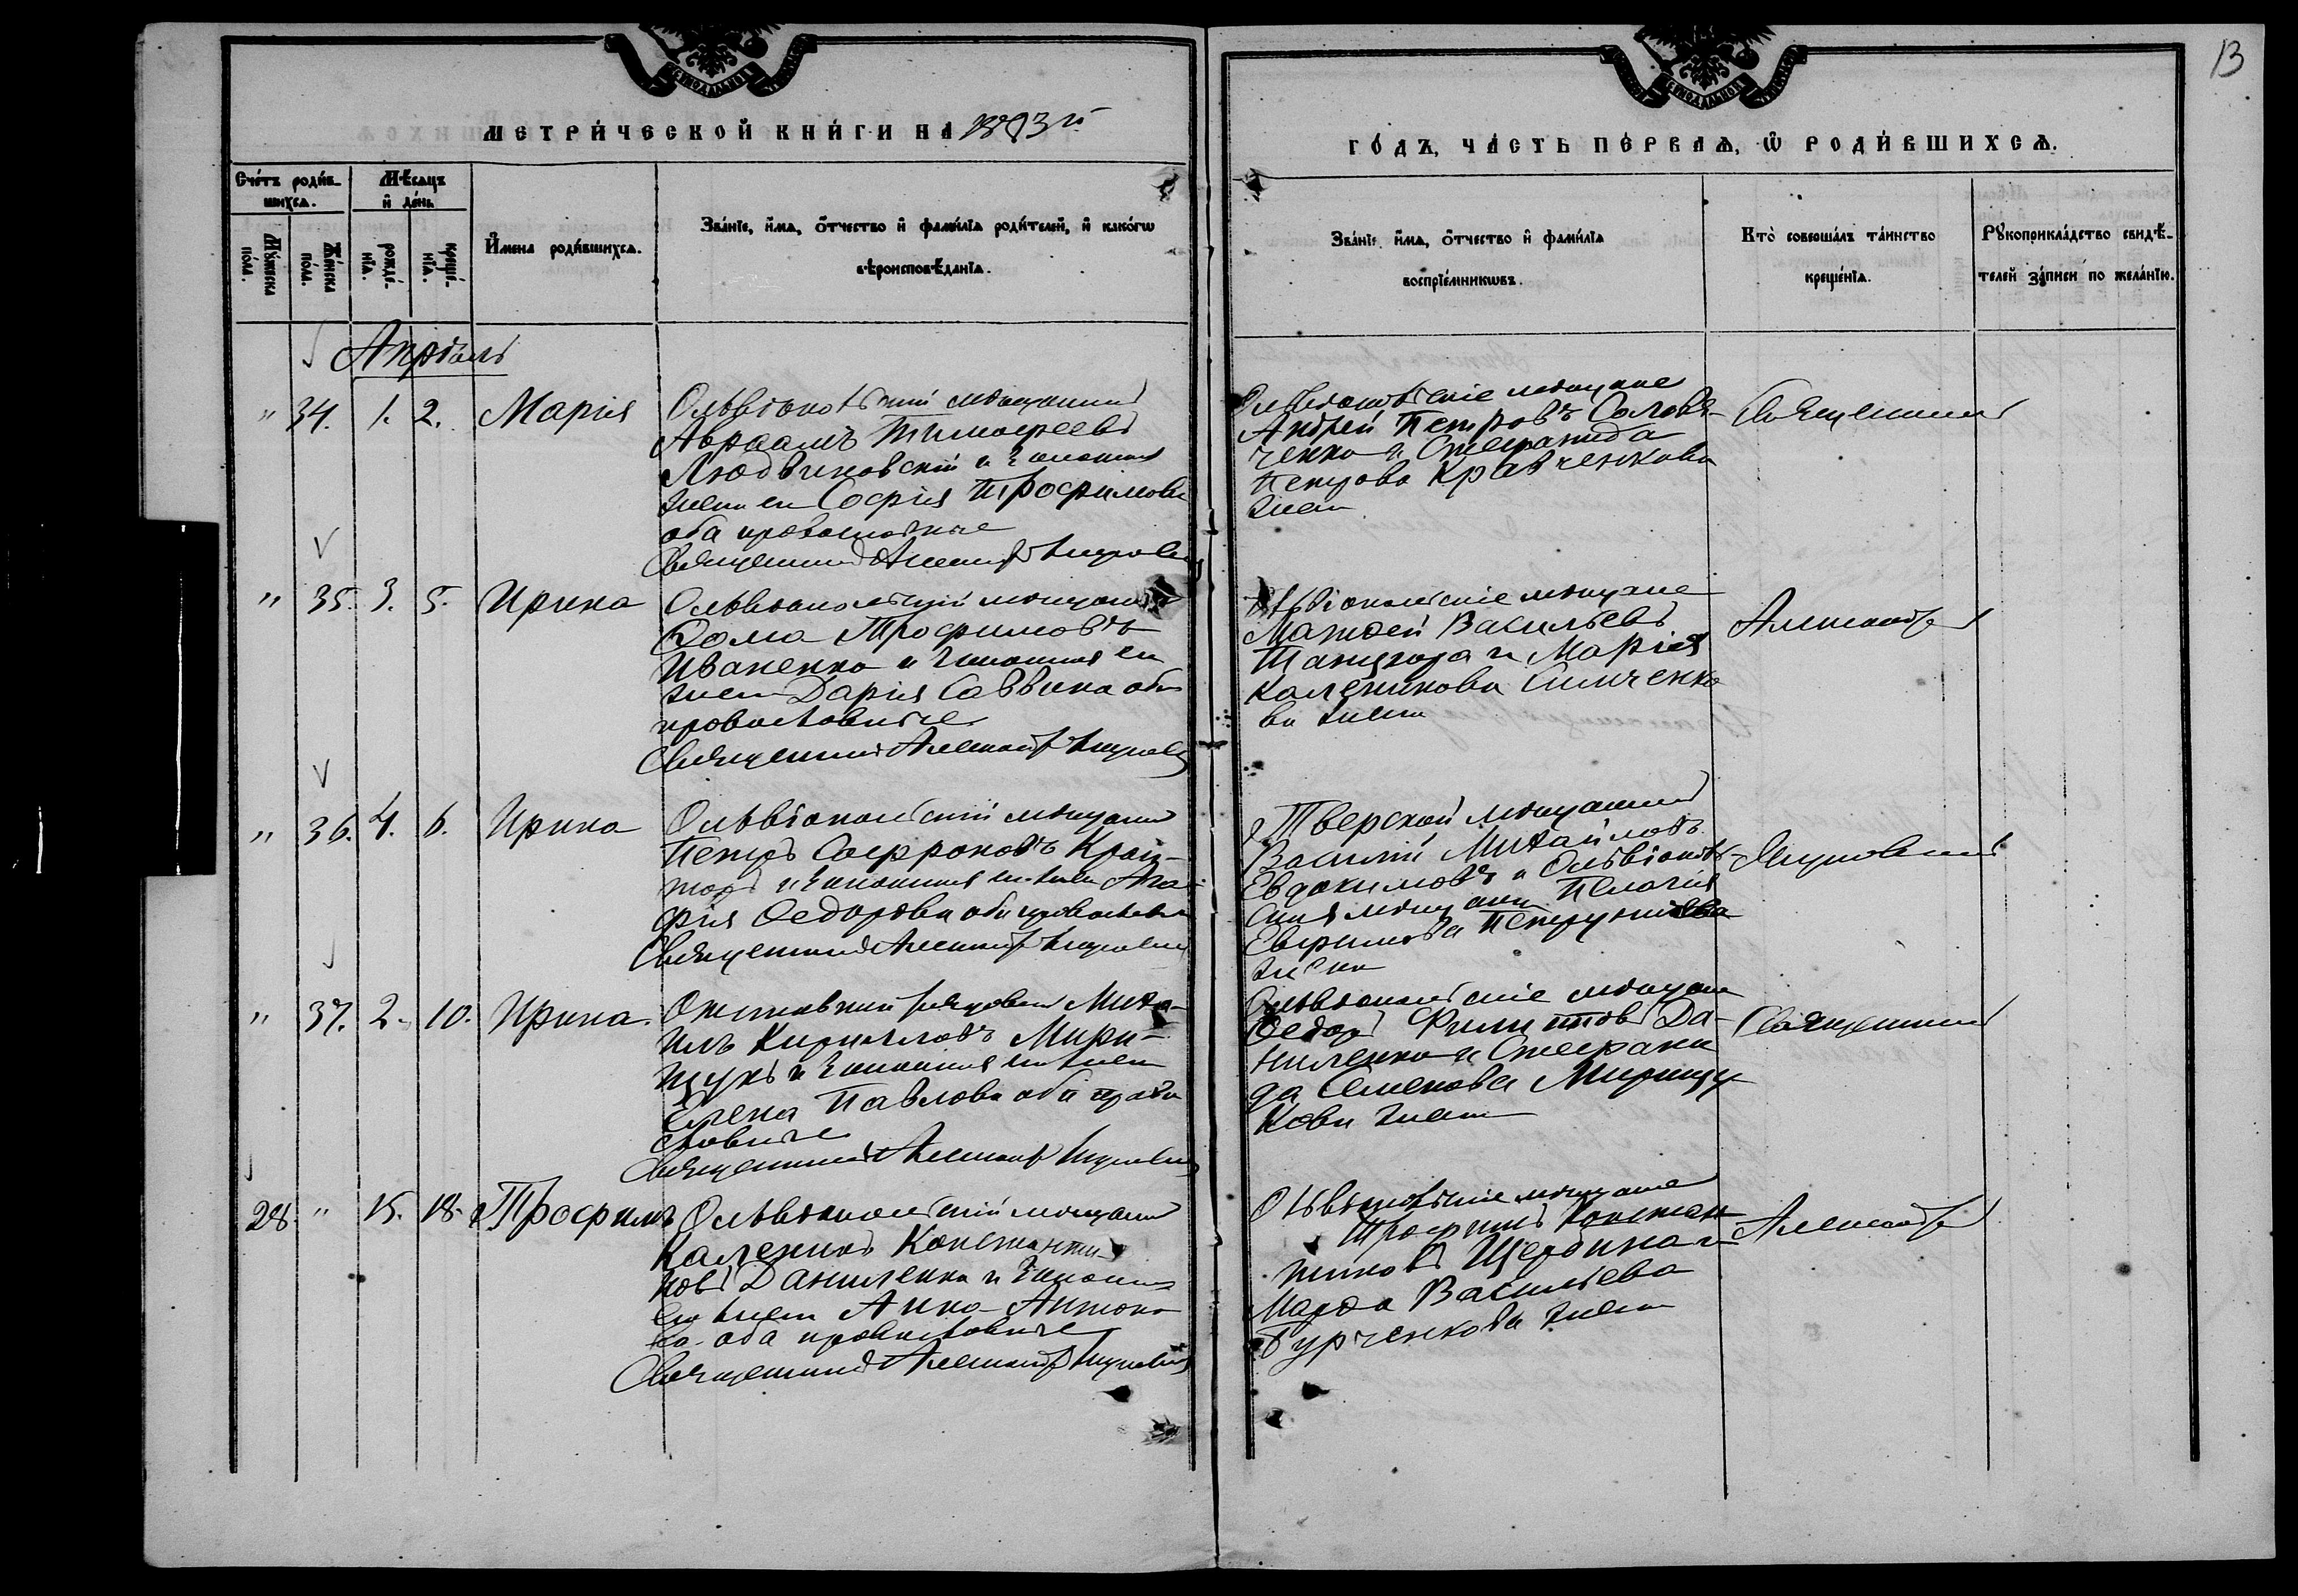 13
МЕТРИ́ЧЕСКОЙ КНИ́ГИ НА 1893й
ГО́ДЪ, ЧА́СТЬ ПЕ́РВАѦ, Ѿ РОДИ́ВШИХСѦ.
Сче́тъ роди́в-
шихсѧ.
Мꙋ́жеска по́ла.
Же́нска по́ла.
Мѣ́сѧцъ
и҆ де́нь
рожде́-
нїѧ.
креще́-
нїѧ.
И҆мена роди́вшихсѧ.
Зва́нїе, и҆́мѧ, ѻ҆́тчество и҆ фами́лїѧ роди́телей, и҆ како́гѡ
вѣроисповѣ́данїѧ.
Зва́нїе, и҆́мѧ, ѻ҆́тчество и҆ фами́лїѧ
воспрїе́мникѡвъ.
Кто̀ соверша́лъ та́инство
креще́нїѧ.
Рꙋкоприкла́дство свидѣ́-
телей за́писи по жела́нїю.
Апрѣль
" 34. 1. 2. Марія
Ольвіопольскій мѣщанинъ
Авраамъ Тимофеевъ
Людвиновскій и законная
жена ея Софія Трофимова
оба православные
Священникъ Александръ
Ольвіопольскіе мѣщане
Андрей Петровъ Соловь-
ченко и Стефанида
Петрова Кравченкова
жена
Священникъ
" 35. 3. 5. Ирина
Ольвіопольскій мѣщанинъ
Ѳома Трофимовъ
Иваненко и законная ея
жена Дарія Саввина оба
православные
Священникъ Александръ
Ольвіопольскіе мѣщане
Матѳей Васильевъ
и Марія
Каленикова Симченко
ва жена
Александръ
" 36. 4. 6. Ирина
Ольвіопольскій мѣщанинъ
Петръ Софроновъ
и законная его жена Ага-
фія Ѳедорова оба православные
Священникъ Александръ
Тверской мѣщанинъ
Василій Михайловъ
Евдокимовъ и Ольвіополь-
ская мѣщанка Пелагія
Евфимова
жена
" 37. 2. 10. Ирина.
рядовой Миха-
илъ Кирилловъ Мири-
щукъ и законная его жена
Елена Павлова оба право
славные
Священникъ Александръ
Ольвіопольскіе мѣщане
Ѳедоръ Филиповъ Да-
ниленко и Стефани
да Семенова Мирищу
кова жена
Священникъ
28. " 15. 18. Трофимъ
Ольвіопольскій мѣщанинъ
Каленикъ Константи-
новъ Даниленко и законная
его жена Анна Антоно
ва оба православные
Священникъ Александръ
Ольвіопольскіе мѣщане
Трофимъ Констан
тиновъ Щербина и
Марѳа Васильева
Бурченкова жена
Александръ